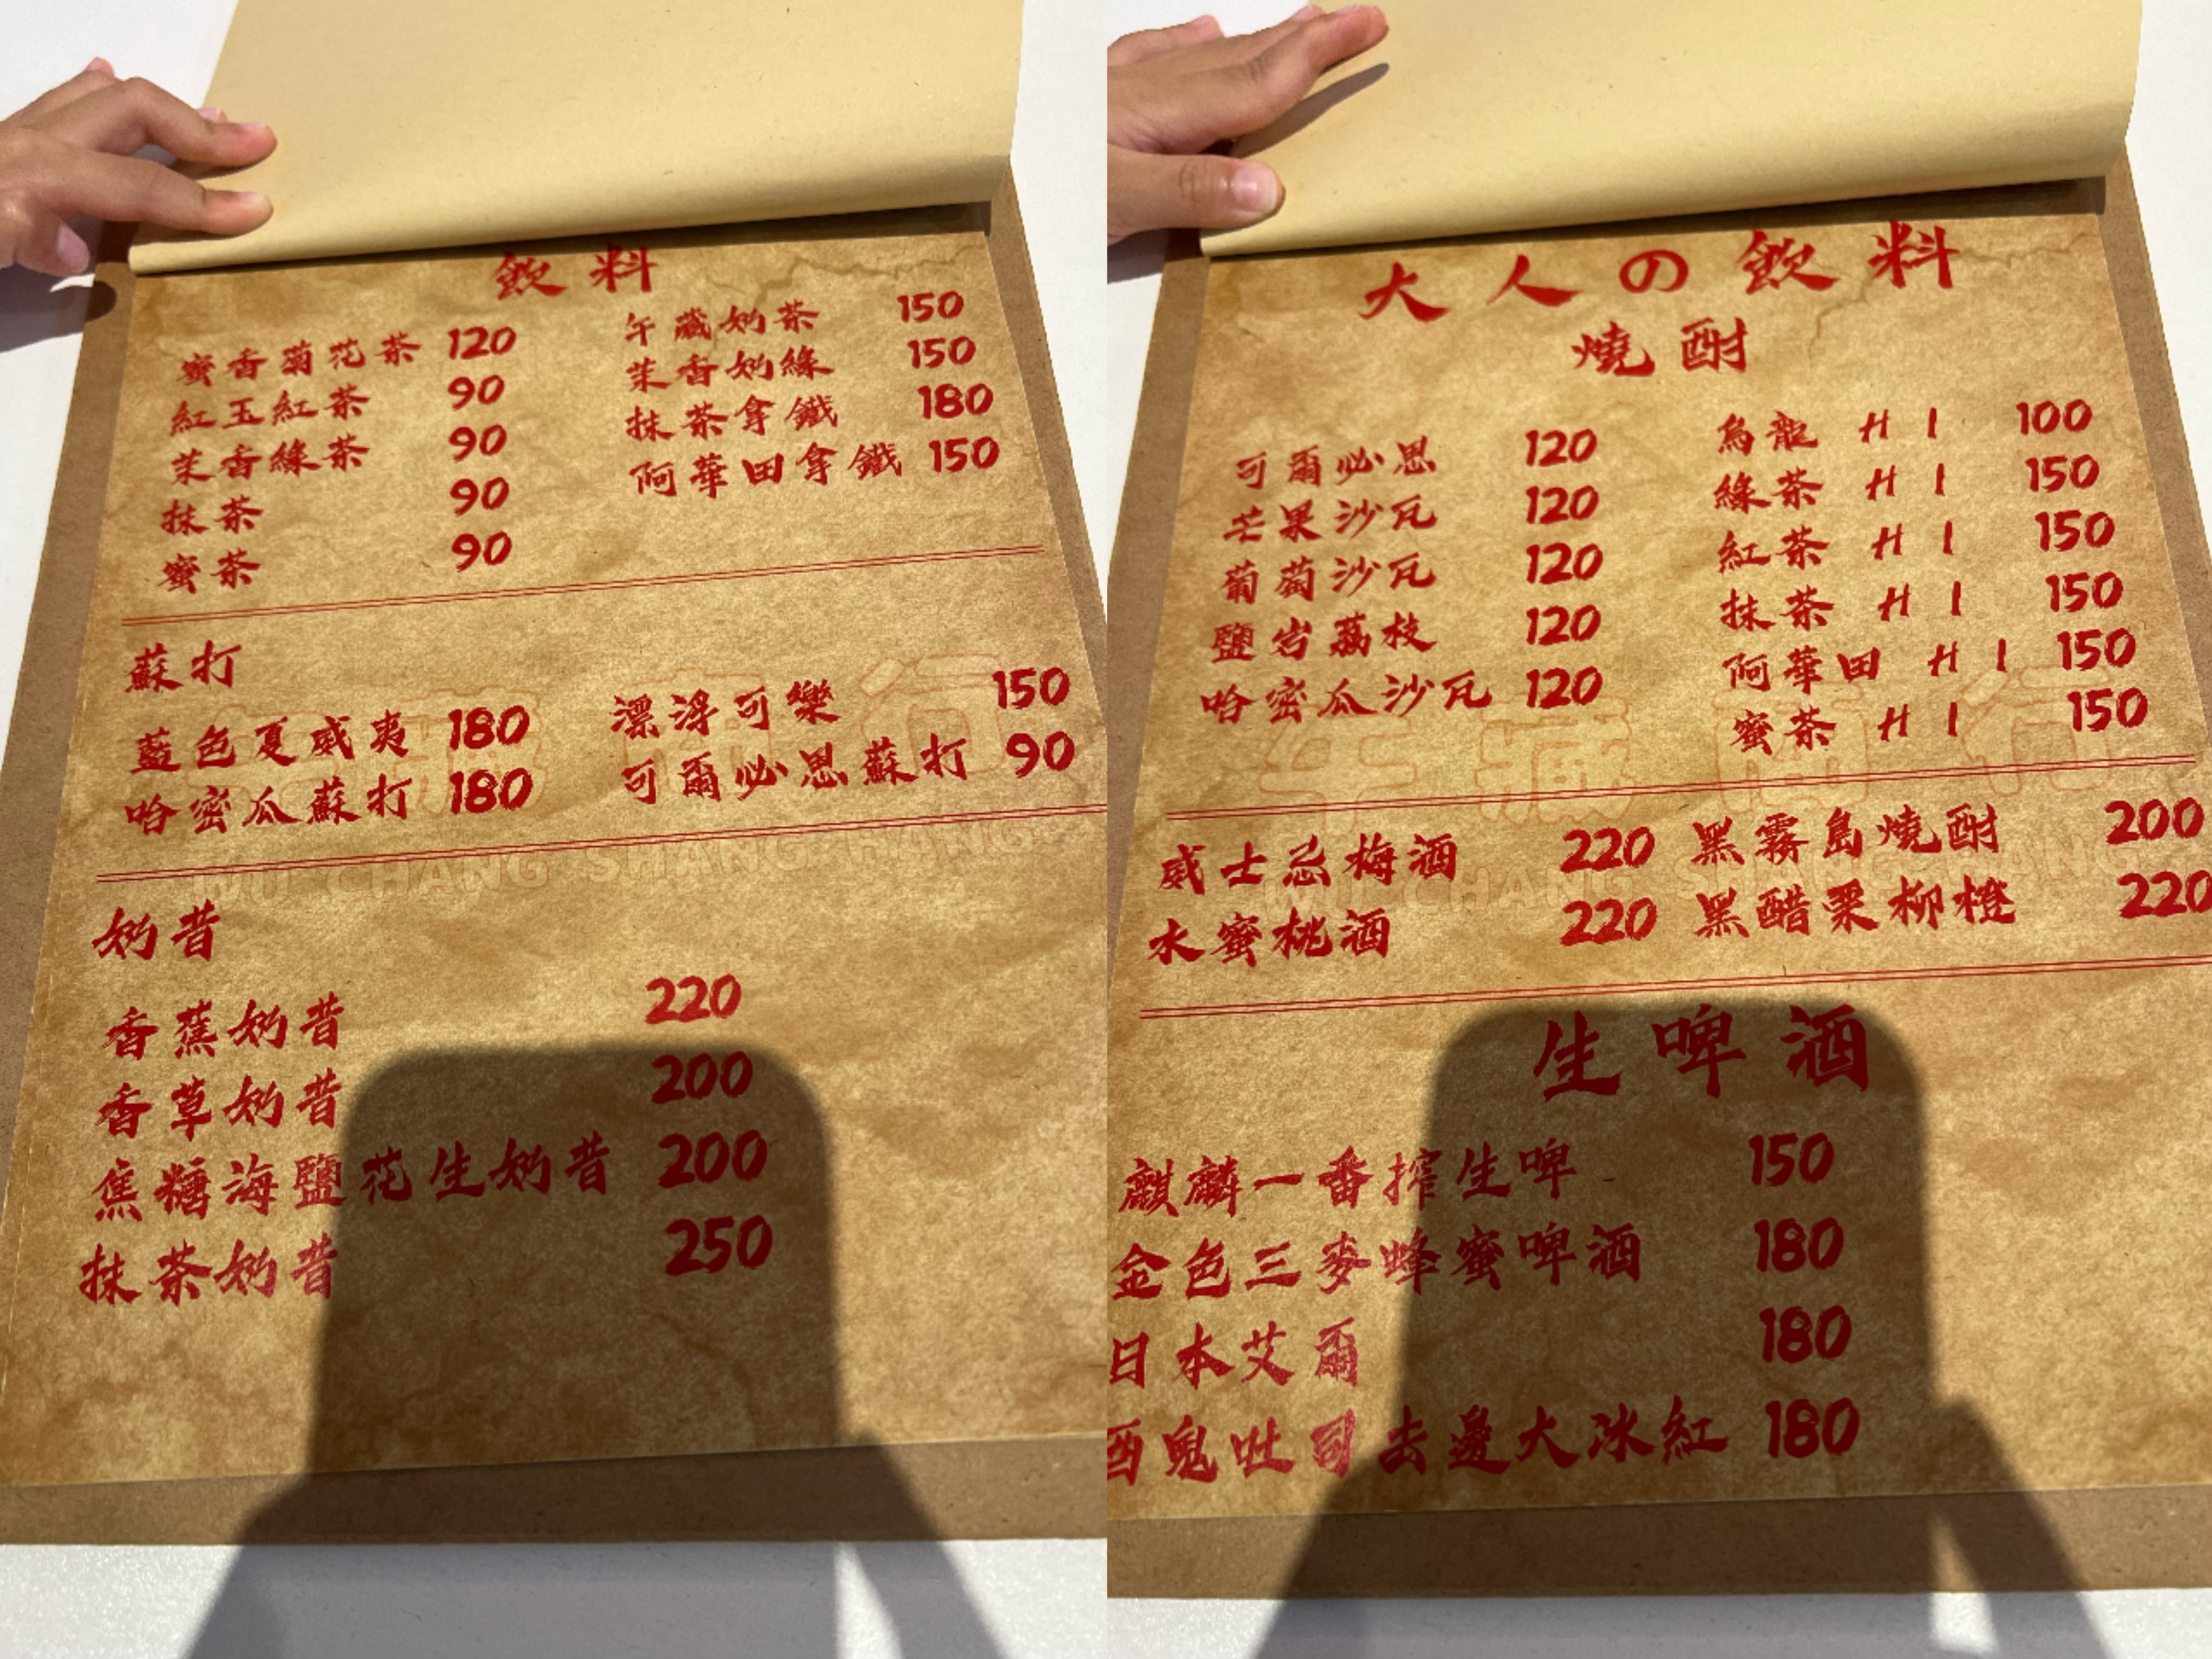 飲料
蜜香菊花茶 120
紅玉紅茶 90
茉香綠茶 90
抹茶 90
蜜茶 90
午藏奶茶 150
茉香奶綠 150
抹茶拿鐵 180
阿華田拿鐵 150
蘇打
藍色夏威夷 180
哈密瓜蘇打 180
漂浮可樂 150
可爾必思蘇打 90
WU CHANG SHANG HANG
奶昔
香蕉奶昔 220
香草奶昔 200
焦糖海鹽花生奶昔 200
抹茶奶昔 250
大人の飲料
燒酎
可爾必思 120
芒果沙瓦 120
葡萄沙瓦 120
鹽岩荔枝 120
哈密瓜沙瓦 120
烏龍 H I 100
綠茶 H I 150
紅茶 H I 150
抹茶 H I 150
阿華田 H I 150
蜜茶 H I 150
午藏商行
WU CHANG SHANG HANG
威士忌梅酒 220
水蜜桃酒 220
黑霧島燒酎 200
黑醋栗柳橙 220
生啤酒
麒麟一番搾生啤 150
金色三麥蜂蜜啤酒 180
日本艾爾 180
酒鬼吐司去邊大冰紅 180